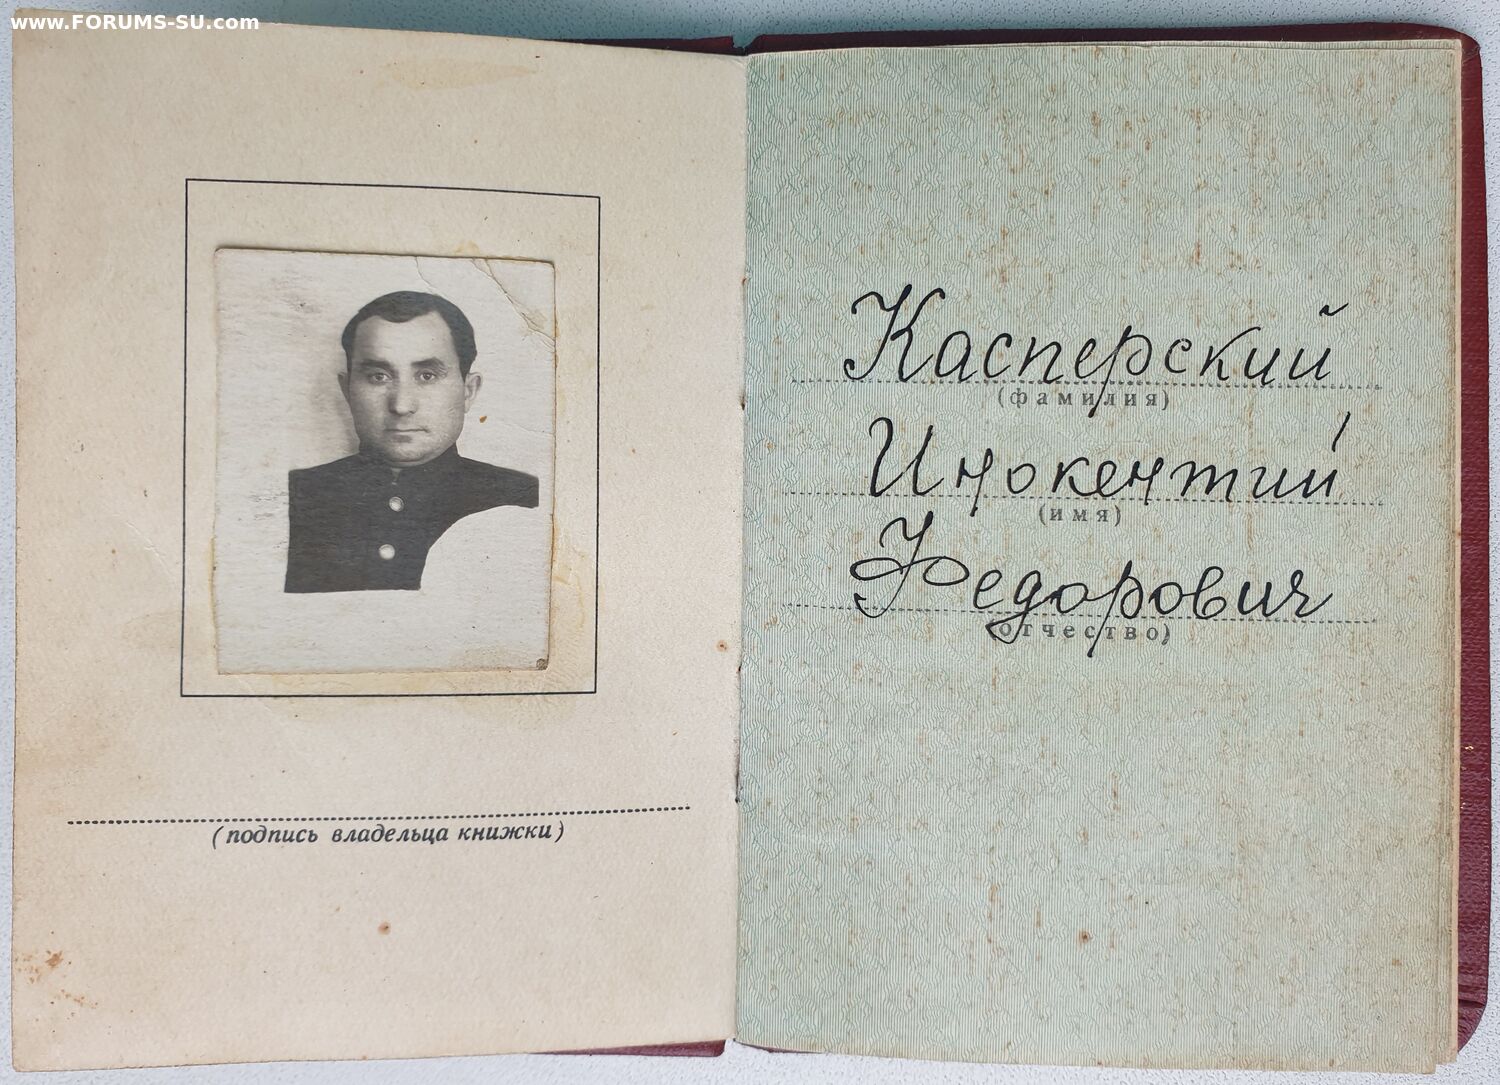 www.FORUMS-SU.com
(подпись владельца книжки)
Касперский
(фамилия)
Инокентий
(имя)
Федорович
(отчество)